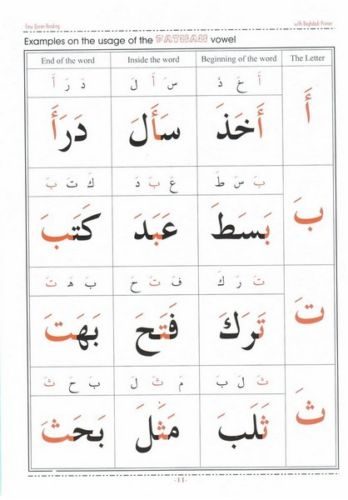 Easy Quran Reading
with Baghdadi Primer
Examples on the usage of the FATHAH vowel
End of the word Inside the word Beginning of the word The Letter
أَ خَ ذَ سَ أَ لَ دَ رَ أَ
أَ أَخَذَ سَأَلَ دَرَأَ
بَ سَ طَ عَ بَ دَ كَ تَ بَ
بَ بَسَطَ عَبَدَ كَتَبَ
تَ رَ كَ فَ تَ حَ بَ هَ تَ
تَ تَرَكَ فَتَحَ بَهَتَ
ثَ لَ بَ مَ ثَ لَ بَ حَ ثَ
ثَ ثَلَبَ مَثَلَ بَحَثَ
-11-